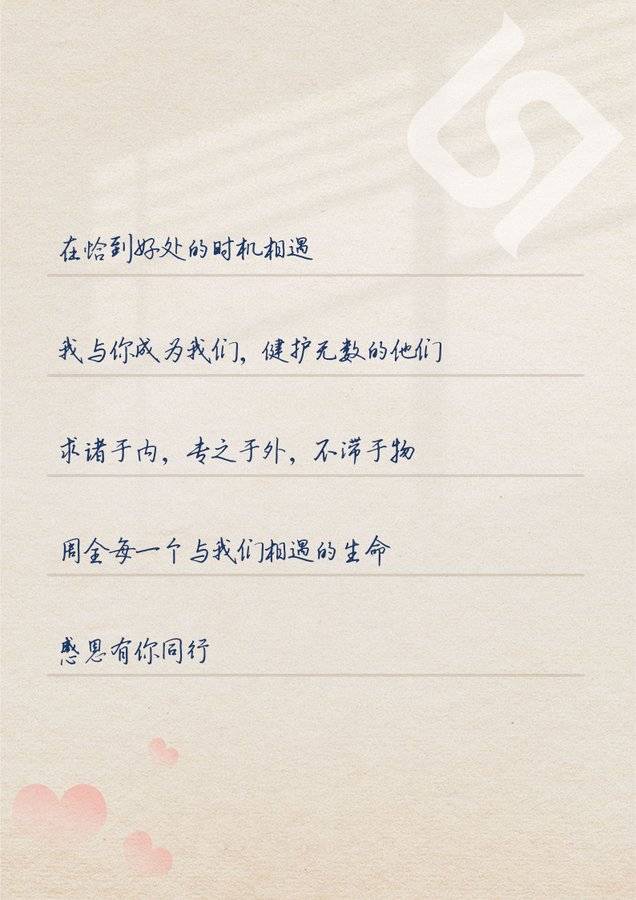 在恰到好处的时机相遇
我与你成为我们，健护无数的他们
求诸于内，专之于外，不滞于物
周全每一个与我们相遇的生命
感恩有你同行